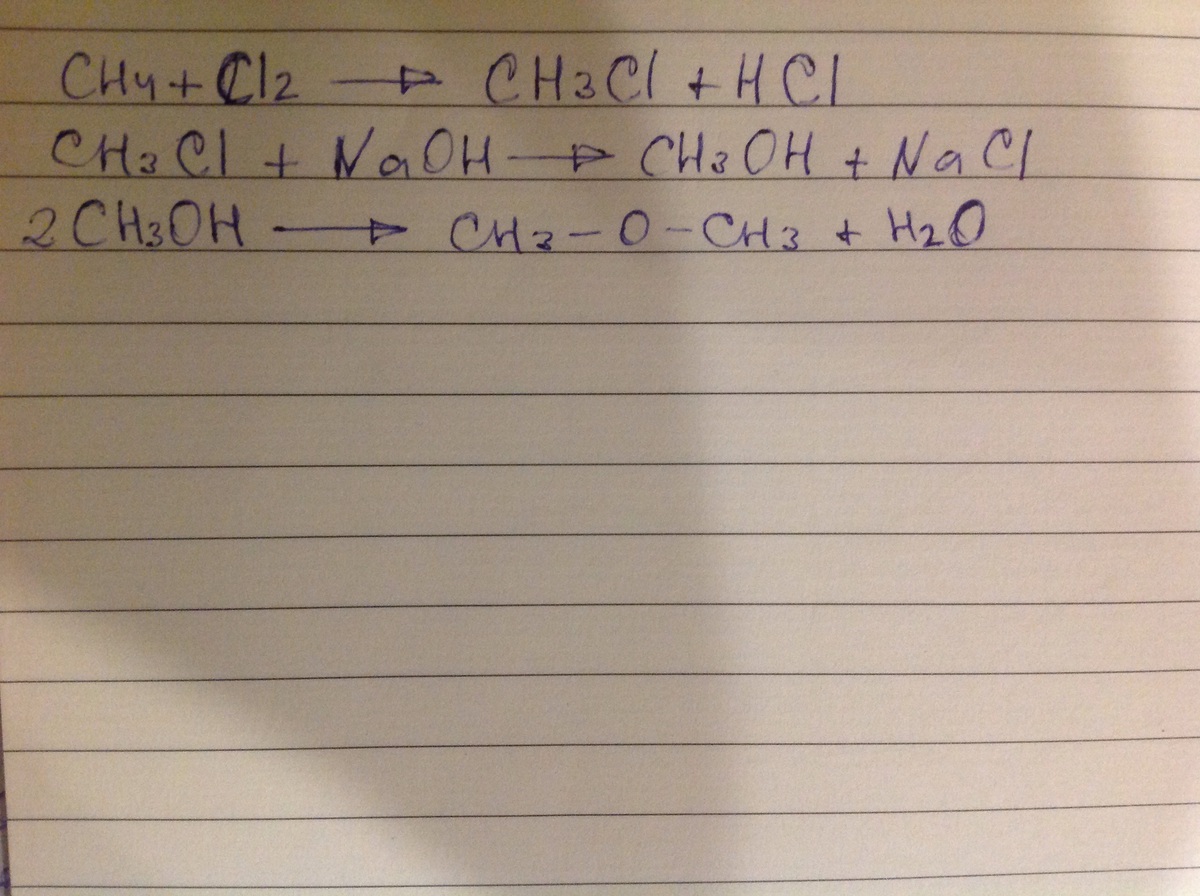 CH4 + Cl2 → CH3Cl + HCl
CH3Cl + NaOH → CH3OH + NaCl
2CH3OH → CH3-O-CH3 + H2O